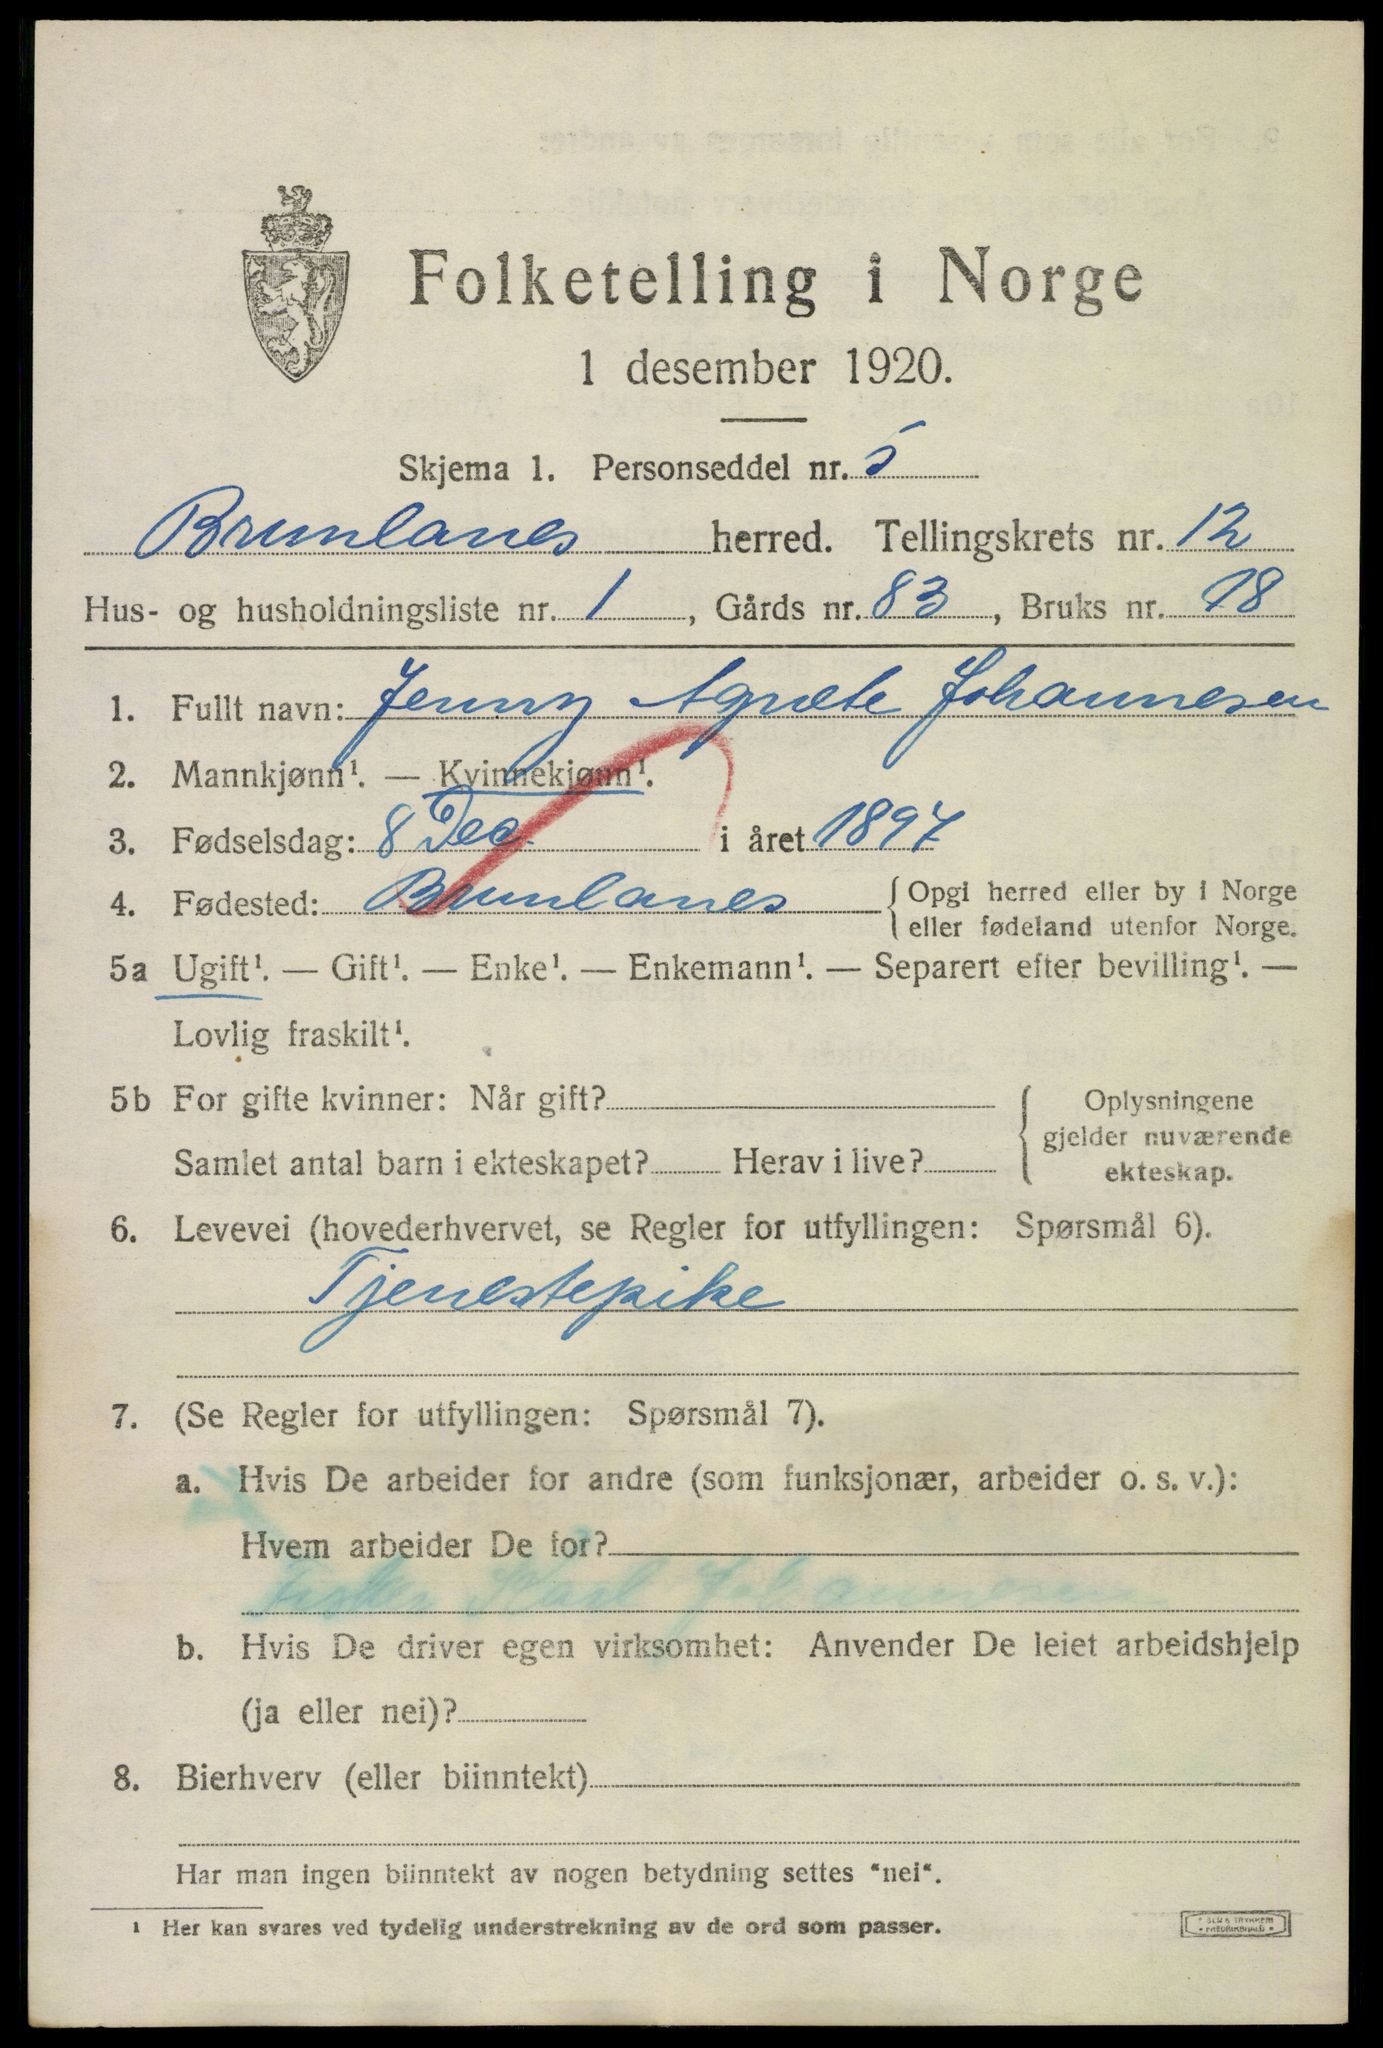 Folketelling i Norge
1 desember 1920.
Skjema 1. Personseddel nr. 5
Brunlanes herred. Tellingskrets nr. 12
Hus- og husholdningsliste nr. 1, Gårds nr. 83, Bruks nr. 18
1. Fullt navn: Jenny Agnete Johannesen
2. Mannkjønn¹. — Kvinnekjønn¹.
3. Fødselsdag: 8 Dec. i året 1897
4. Fødested: Brunlanes { Opgi herred eller by i Norge
eller fødeland utenfor Norge.
5a Ugift¹. — Gift¹. — Enke¹. — Enkemann¹. — Separert efter bevilling¹. —
Lovlig fraskilt¹.
5b For gifte kvinner: Når gift? { Oplysningene
gjelder nuværende
Samlet antal barn i ekteskapet? Herav i live? ekteskap.
6. Levevei (hovederhvervet, se Regler for utfyllingen: Spørsmål 6).
Tjenestepike
7. (Se Regler for utfyllingen: Spørsmål 7).
a. Hvis De arbeider for andre (som funksjonær, arbeider o. s. v.):
Hvem arbeider De for?
Fisker Karl Johannesen
b. Hvis De driver egen virksomhet: Anvender De leiet arbeidshjelp
(ja eller nei)?
8. Bierhverv (eller biinntekt)
Har man ingen biinntekt av nogen betydning settes "nei".
¹ Her kan svares ved tydelig understrekning av de ord som passer.